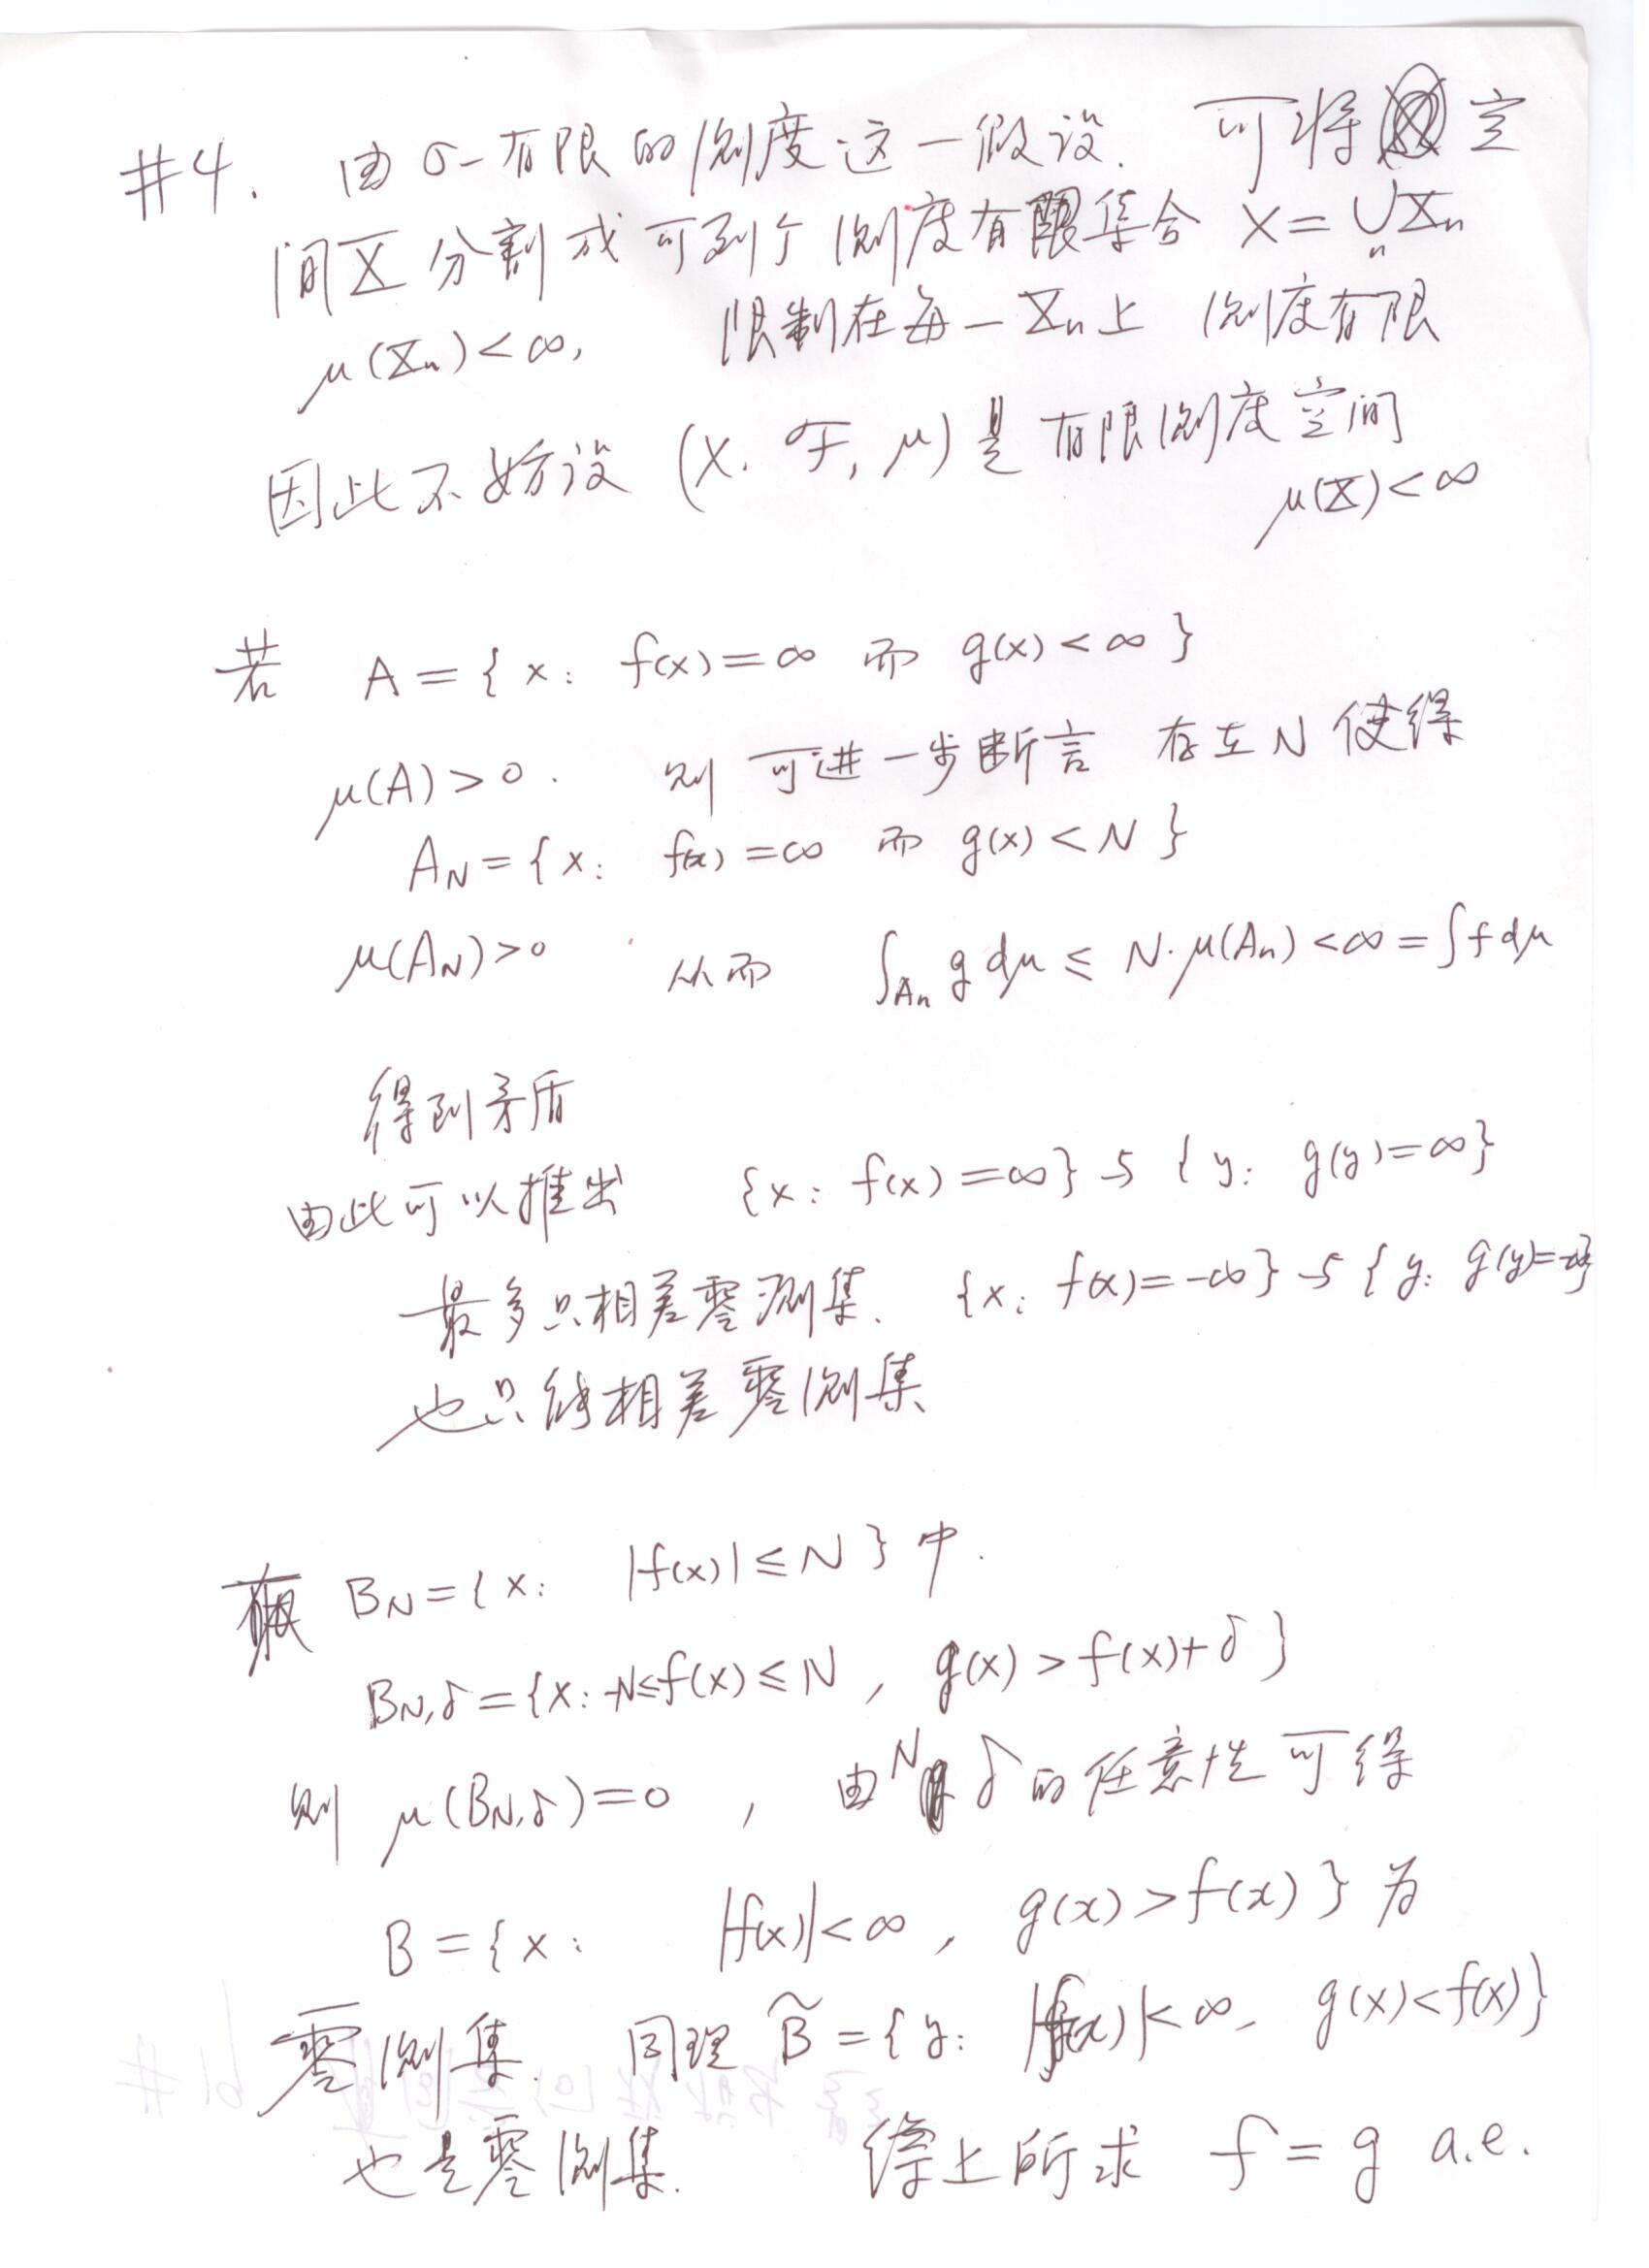 #4. 由 σ-有限的测度这一假设. 可将空
间X 分割成可列个测度有限集合 X = ∪_n X_n
μ(X_n) < ∞, 限制在每一 X_n 上 测度有限
因此不妨设 (X. ℱ, μ) 是 有限测度空间
μ(X) < ∞
若 A = { x: f(x) = ∞ 而 g(x) < ∞ }
μ(A) > 0. 则 可进一步断言 存在 N 使得
A_N = { x: f(x) = ∞ 而 g(x) < N }
μ(A_N) > 0 从而 ∫_{A_n} g dμ ≤ N·μ(A_n) < ∞ = ∫ f dμ
得到矛盾
由此可以推出 {x: f(x) = ∞} 与 { y: g(y) = ∞}
最多只相差零测集. {x: f(x) = -∞} 与 { y: g(y) = -∞}
也只能相差零测集
B_N = { x: |f(x)| ≤ N } 中.
B_{N,δ} = {x: -N ≤ f(x) ≤ N , g(x) > f(x)+δ }
则 μ(B_{N,δ}) = 0 , 由 N δ 的任意性可得
B = { x: |f(x)| < ∞ , g(x) > f(x) } 为
零测集. 同理 B̃ = { y: |f(x)| < ∞, g(x) < f(x) }
也是零测集. 综上所求 f = g a.e.